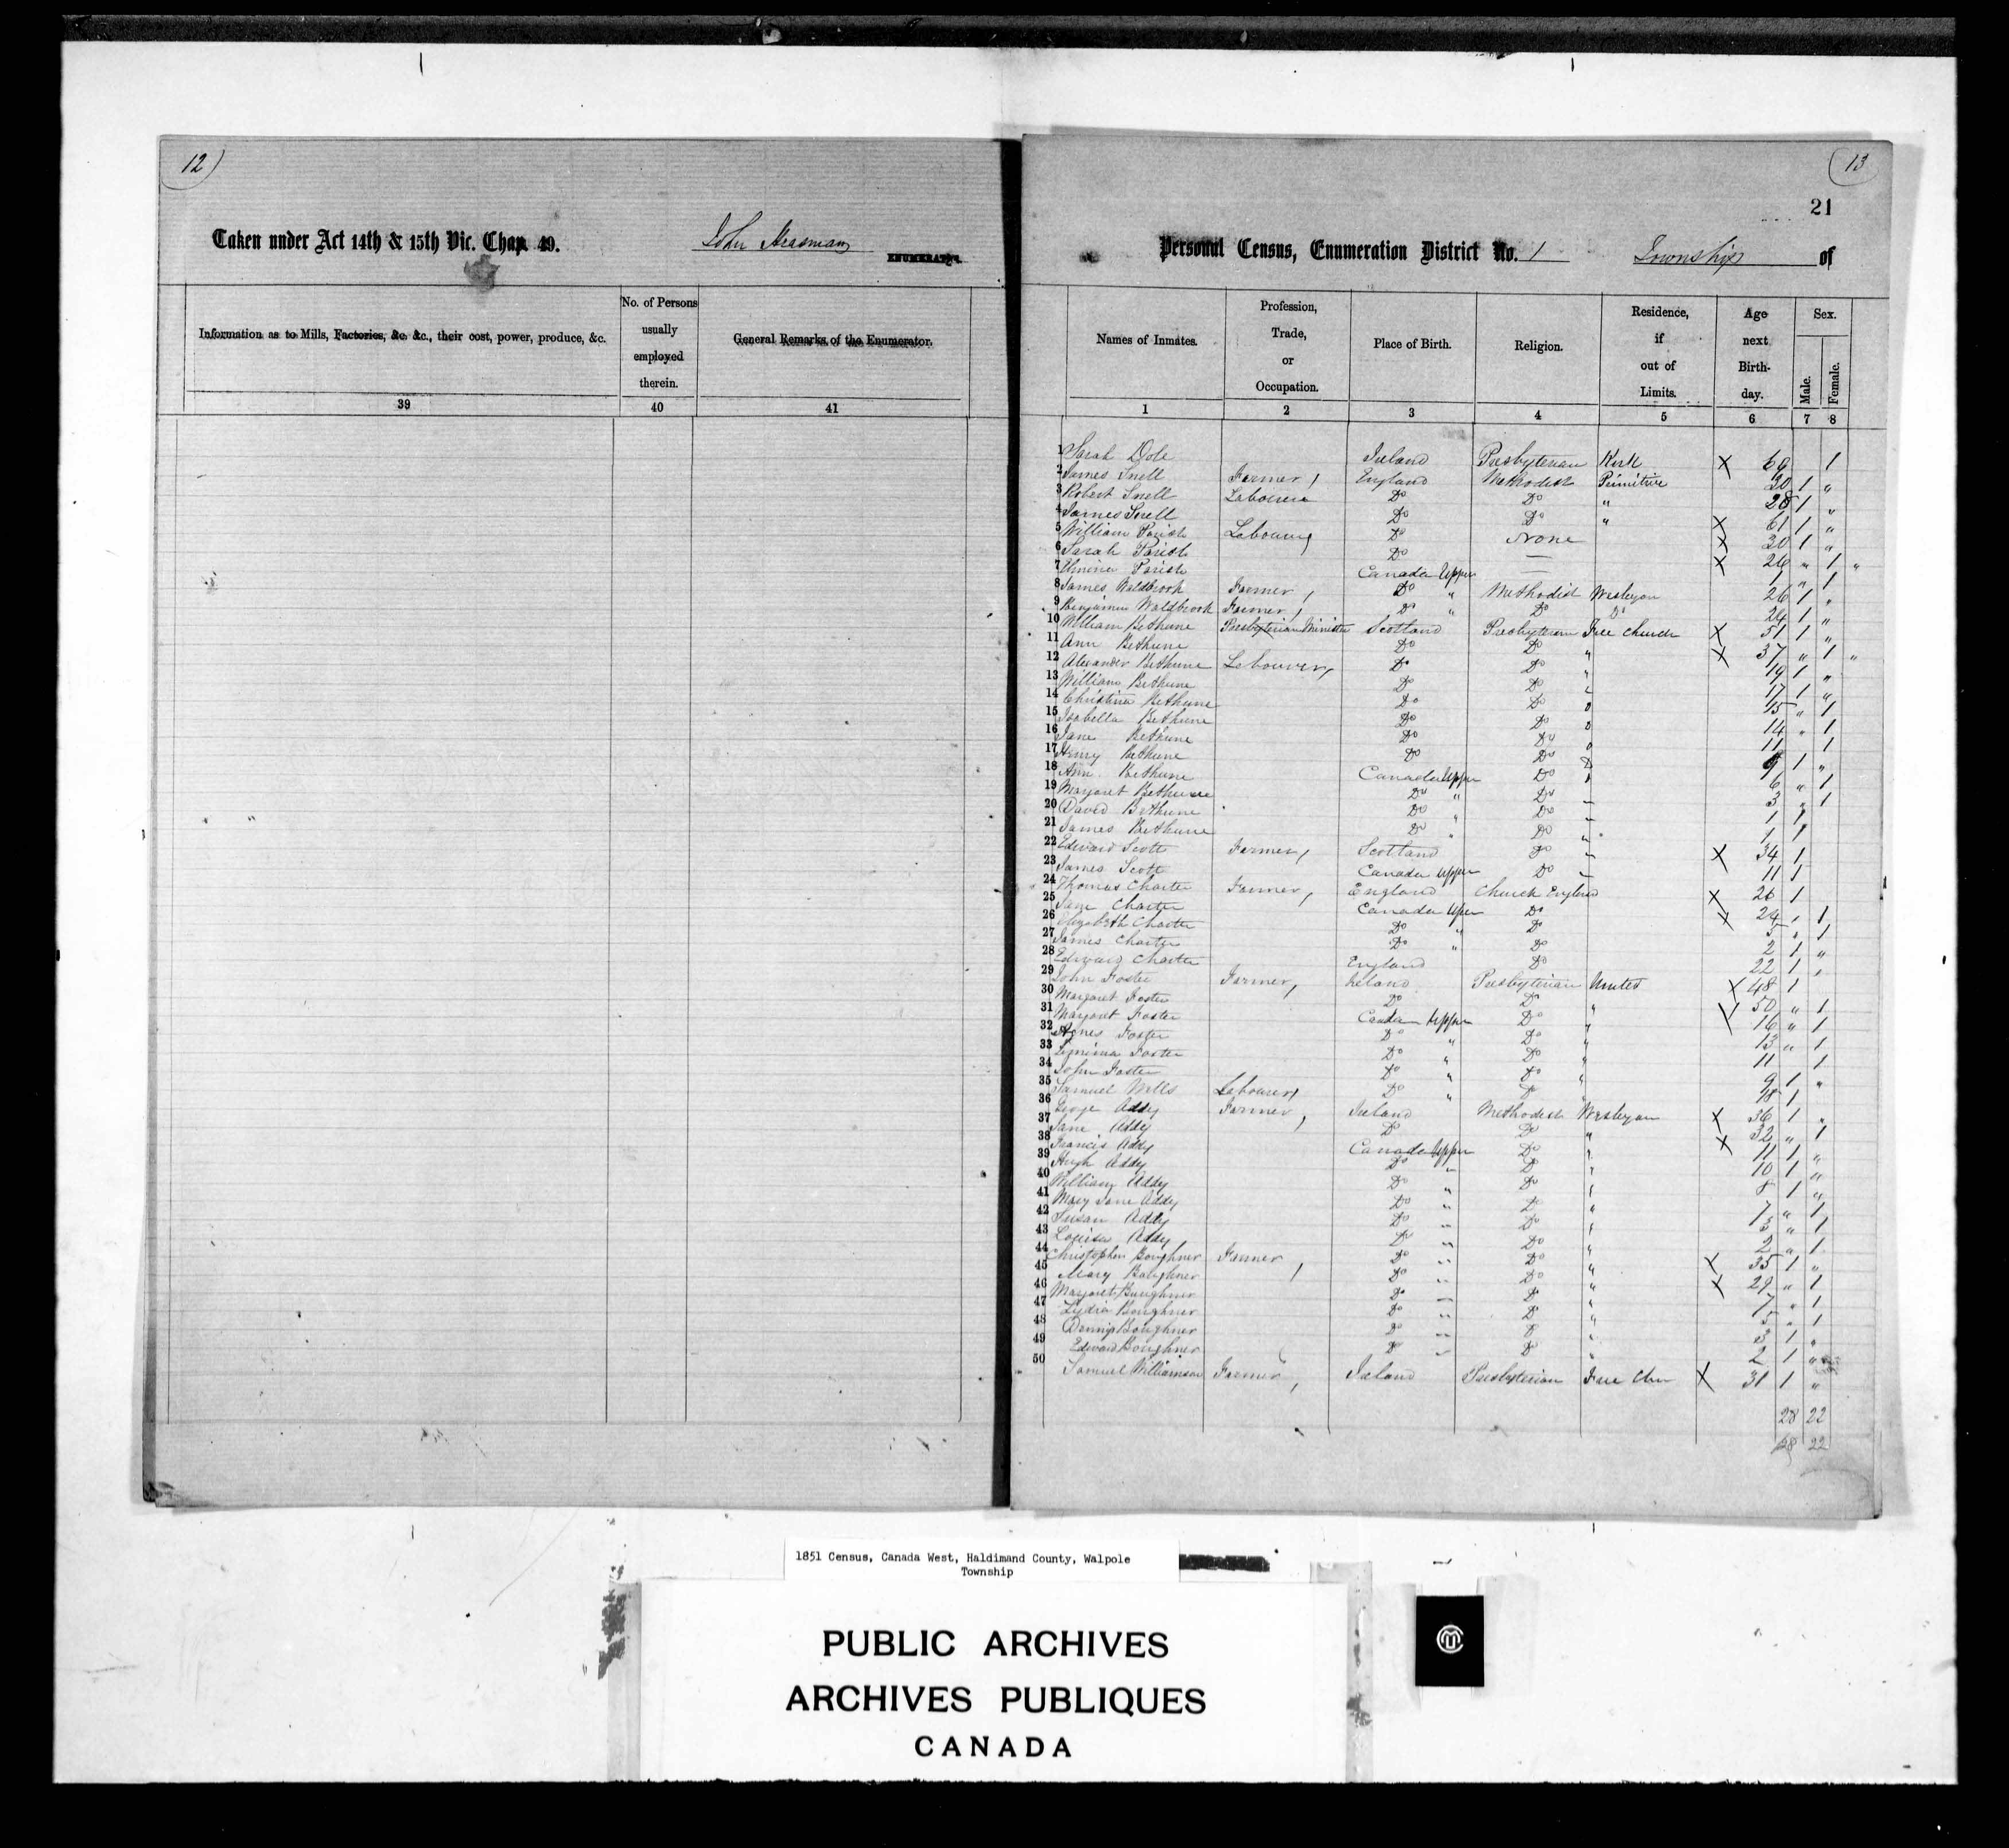 12)
Taken under Act 14th & 15th Vic. Chap. 49.
John
ENUMERATOR.
Information as to Mills, Factories, &c. &c., their cost, power, produce, &c.
No. of Persons usually employed therein.
General Remarks of the Enumerator.
39 40 41
13
21
Personal Census, Enumeration District No. 1 Township of
Names of Inmates.
Profession, Trade, or Occupation.
Place of Birth.
Religion.
Residence, if out of Limits.
Age next Birth-day.
Sex.
Male. Female.
1 2 3 4 5 6 7 8
1 Sarah Dole Ireland Presbyterian Kirk X 1
2 James Snell Farmer, England Methodist Primitive 30 1 "
3 Robert Snell Labourer Do Do " 28 1 "
4 James Snell Do Do " X 61 1 "
5 William Parish Labourer Do None X 30 1 "
6 Sarah Parish Do — X 26 " 1 "
7 Parish Canada Upper — 1 " 1
8 James Waldbrook Farmer, Do " Methodist Wesleyan 26 1 "
9 Benjamin Waldbrook Farmer, Do " Do Do 24 1 "
10 William Bethune Presbyterian Minister Scotland Presbyterian Free Church X 51 1 "
11 Ann Bethune Do Do " X 37 " 1 "
12 Alexander Bethune Labourer, Do Do " 19 1 "
13 William Bethune Do Do " 17 1 "
14 Christina Bethune Do Do 15 " 1
15 Isabella Bethune Do Do 14 " 1
16 Jane Bethune Do Do 11 1
17 Henry Bethune Do Do 9 1 "
18 Ann Bethune Canada Upper Do 6 " 1
19 Margaret Bethune Do " Do 3 " 1
20 David Bethune Do " Do 1 1
21 James Bethune Do " Do " 1 1
22 Edward Scott Farmer, Scotland Do " X 34 1
23 James Scott Canada Upper Do 11 1
24 Thomas Charter Farmer, England Church England X 26 1
25 Jane Charter Canada Upper Do X 24 " 1
26 Elizabeth Charter Do " Do 5 " 1
27 James Charter Do " Do 2 1 "
28 Edward Charter England Do 22 1 "
29 John Foster Farmer, Ireland Presbyterian United X 48 1
30 Margaret Foster Do Do " 50 " 1
31 Margaret Foster Canada Upper Do " 16 " 1
32 Agnes Foster Do " Do " 13 " 1
33 Foster Do " Do " 11 1
34 John Foster Do " Do " 9 1 "
35 Samuel Wells Labourer, Do " Do " 18 1
36 George Addy Farmer, Ireland Methodist Wesleyan X 36 1 "
37 Jane Addy Do Do " X 32 " 1
38 Francis Addy Canada Upper Do " 11 1 "
39 Hugh Addy Do " Do " 10 1 "
40 William Addy Do " Do " 8 1 "
41 Mary Jane Addy Do " Do " 7 " 1
42 Susan Addy Do " Do " " 1
43 Louisa Addy Do " Do " 2 " 1
44 Christopher Boughner Farmer, Do " Do " X 35 1 "
45 Mary Boughner Do " Do " X 29 " 1
46 Margaret Boughner Do " Do " 7 " 1
47 Lydia Boughner Do " Do " 5 " 1
48 Dennis Boughner Do " Do " 3 1 "
49 Edward Boughner Do " Do " 2 1 "
50 Samuel Williamson Farmer, Ireland Presbyterian Free Chu X 31 1 "
28 22
28 22
1851 Census, Canada West, Haldimand County, Walpole
Township
PUBLIC ARCHIVES
ARCHIVES PUBLIQUES
CANADA